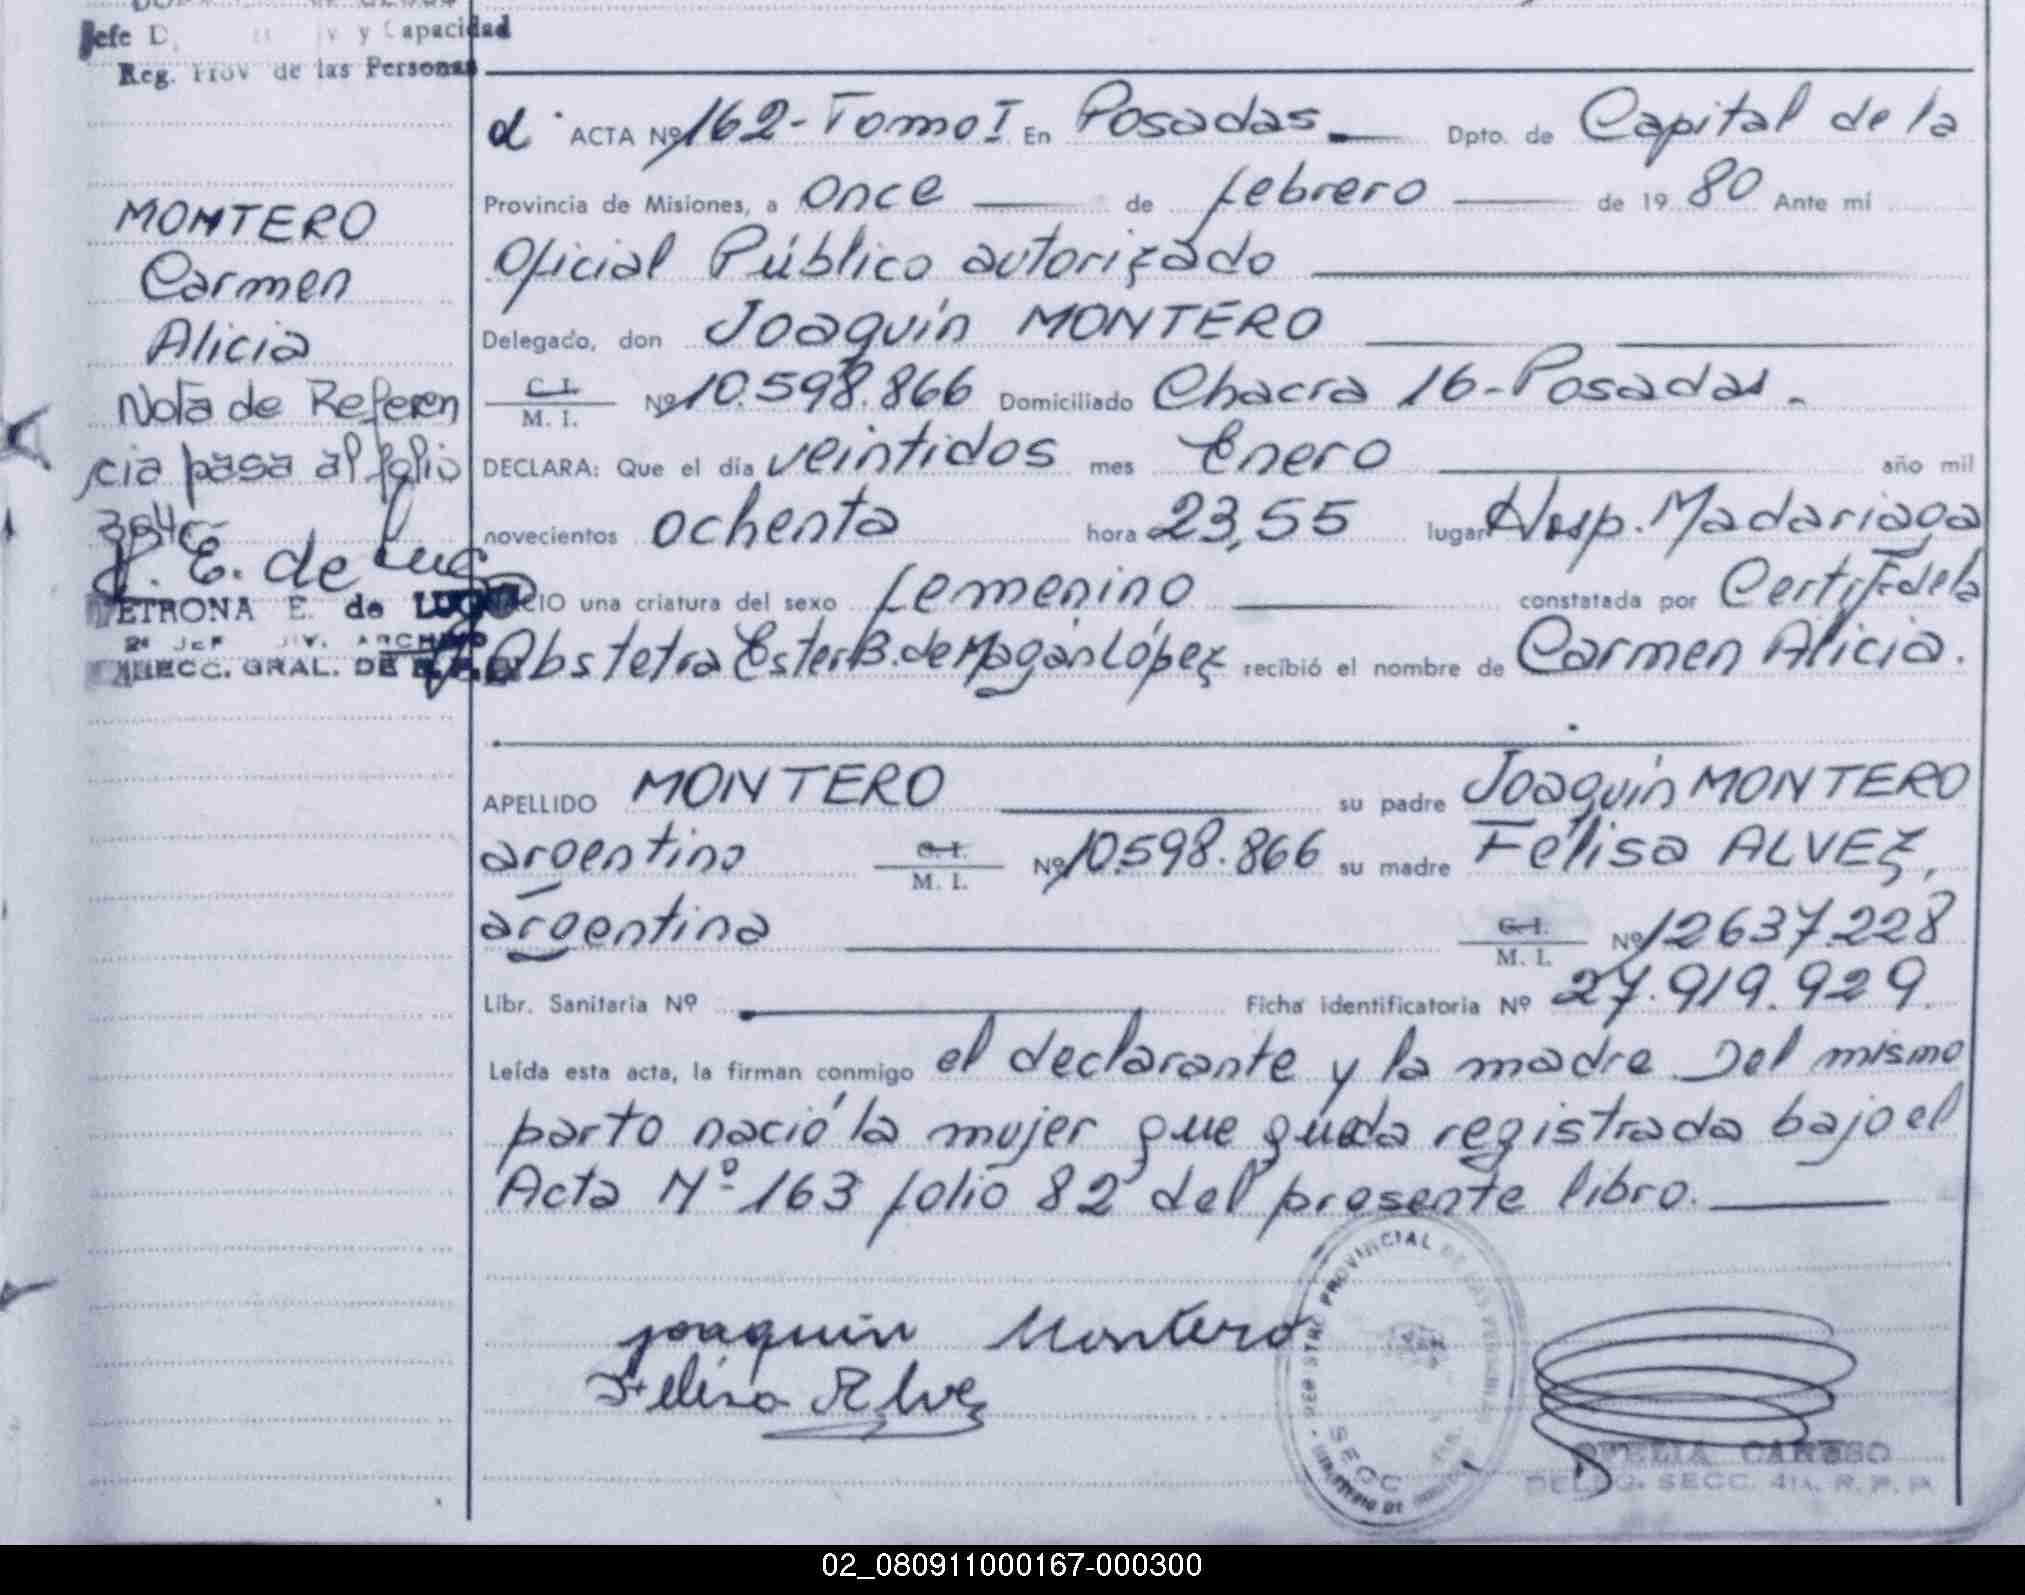 Jefe D y Capacidad
Reg. Prov de las Personas
MONTERO
Carmen
Alicia
Nota de Referen
cia pasa al folio
P. E. de Lugo
PETRONA E. de LUGO
ARCHIVO
DIRECC. GRAL. DE
d. ACTA Nº 162-Tomo I En Posadas Dpto. de Capital de la
Provincia de Misiones, a once de febrero de 19 80 Ante mí
Oficial Público autorizado
Delegado, don Joaquín MONTERO
C. I.
M. I. Nº 10.598.866 Domiciliado Chacra 16-Posadas.
DECLARA: Que el día veintidos mes Enero año mil
novecientos ochenta hora 23,55 lugar Hosp. Madariaga
NACIO una criatura del sexo femenino constatada por Certif. de la
Obstetra Ester B. de Magán López recibió el nombre de Carmen Alicia.
APELLIDO MONTERO su padre Joaquín MONTERO
argentino C. I. M. I. Nº 10.598.866 su madre Felisa ALVEZ,
argentina C. I. M. I. Nº 12637.228
Libr. Sanitaria Nº Ficha identificatoria Nº 27.919.929.
Leída esta acta, la firman conmigo el declarante y la madre. Del mismo
parto nació la mujer que queda registrada bajo el
Acta Nº 163 folio 82 del presente libro.
joaquin Montero
Felisa Alvez
REGISTRO PROVINCIAL DE LAS PERSONAS
SECC
OFELIA CARUSO
DELEG. SECC. 4ta. R. P. P.
02_080911000167-000300